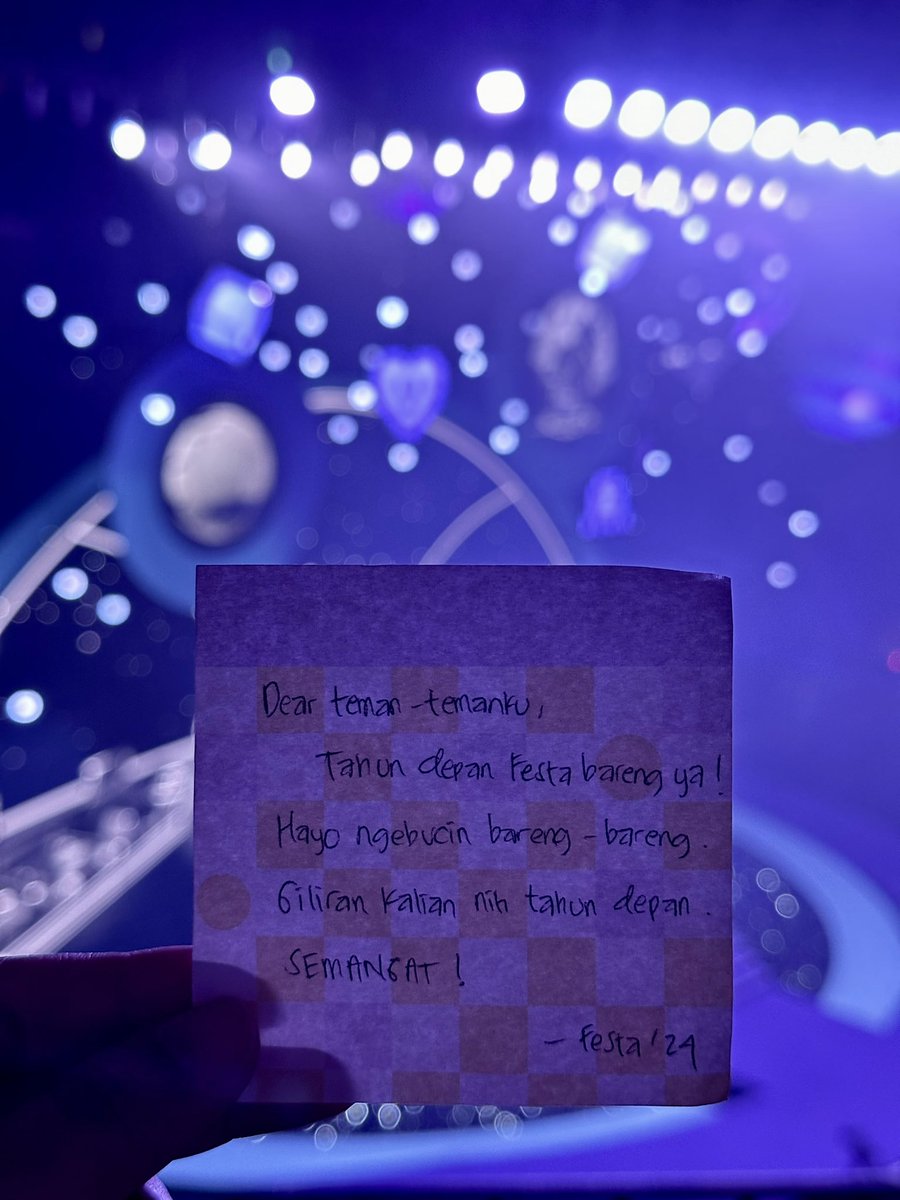 Dear teman-temanku,
Tahun depan Festa bareng ya!
Hayo ngebucin bareng-bareng.
Giliran kalian nih tahun depan.
SEMANGAT!
- Festa '24